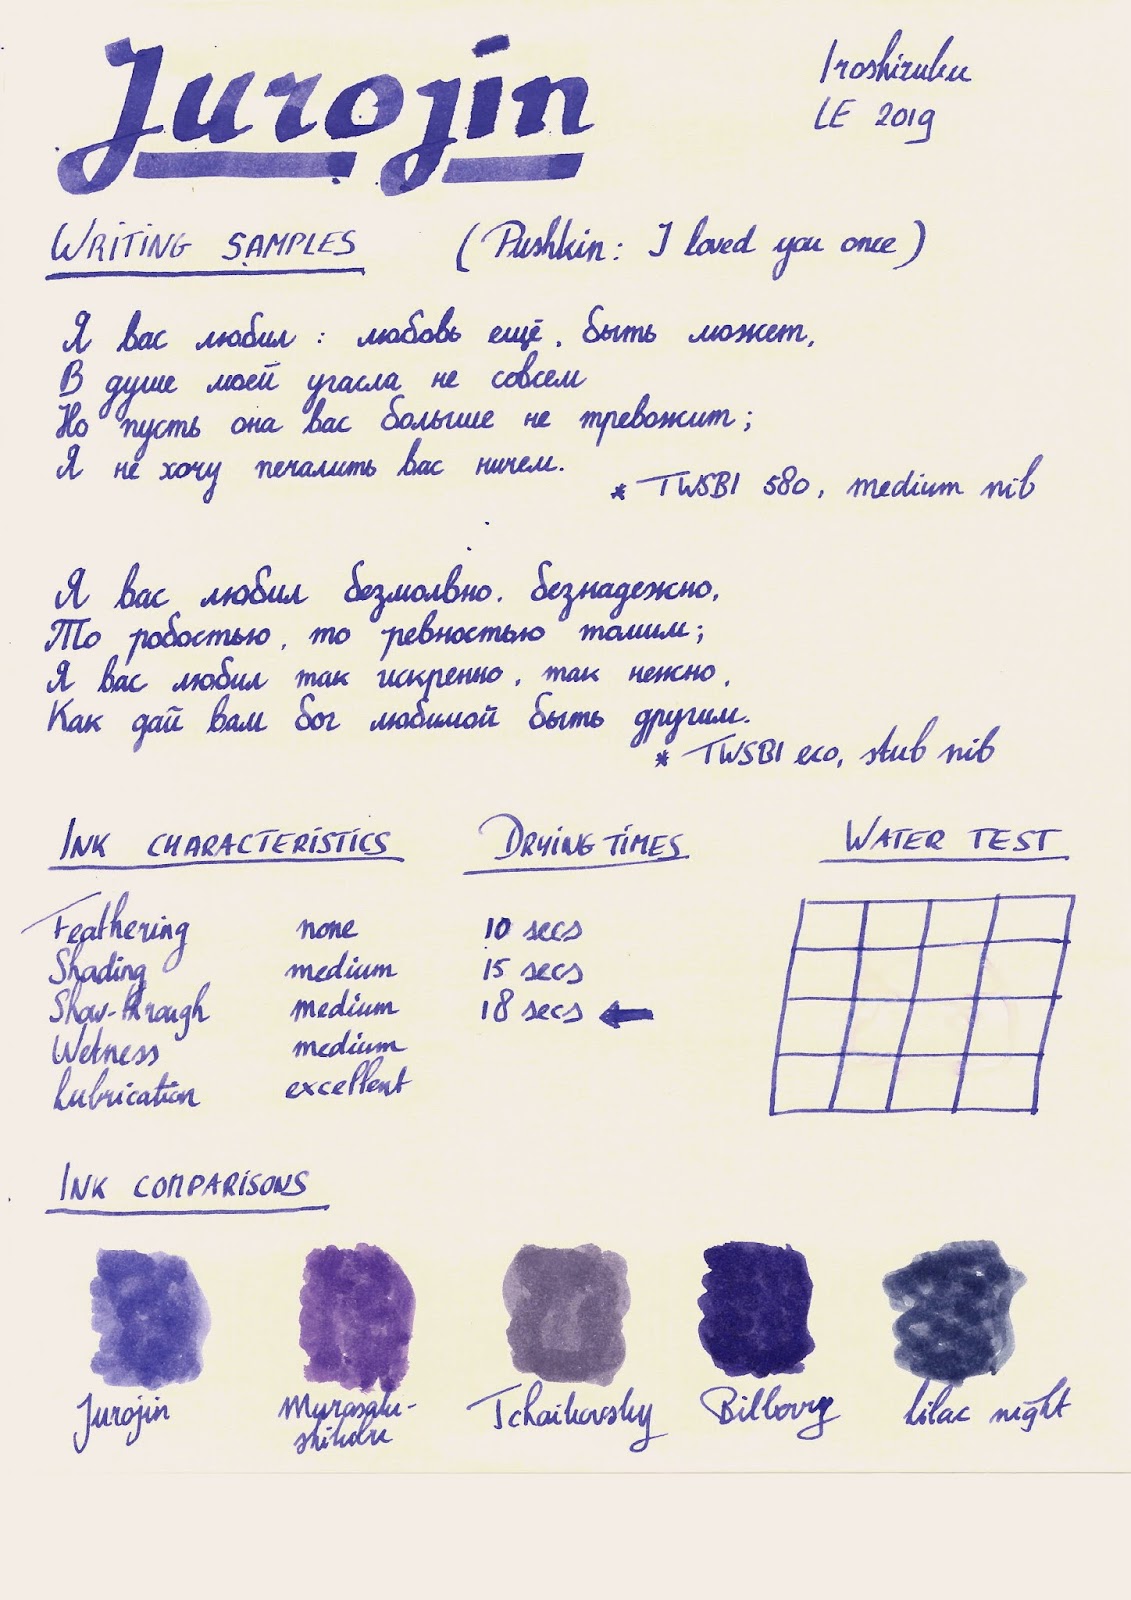 Jurojin
Iroshizuku
LE 2019
WRITING SAMPLES (Pushkin: I loved you once)
Я вас любил: любовь ещё, быть может,
В душе моей угасла не совсем
Но пусть она вас больше не тревожит;
Я не хочу печалить вас ничем.
* TWSBI 580, medium nib
Я вас любил безмолвно, безнадежно,
То робостью, то ревностью томим;
Я вас любил так искренно, так нежно,
Как дай вам бог любимой быть другим.
* TWSBI eco, stub nib
INK CHARACTERISTICS DRYING TIMES WATER TEST
Feathering none 10 secs
Shading medium 15 secs
Show-through medium 18 secs
Wetness medium
Lubrication excellent
INK COMPARISONS
Jurojin Murasaki- Tchaikovsky Bilberry Lilac night
shikibu